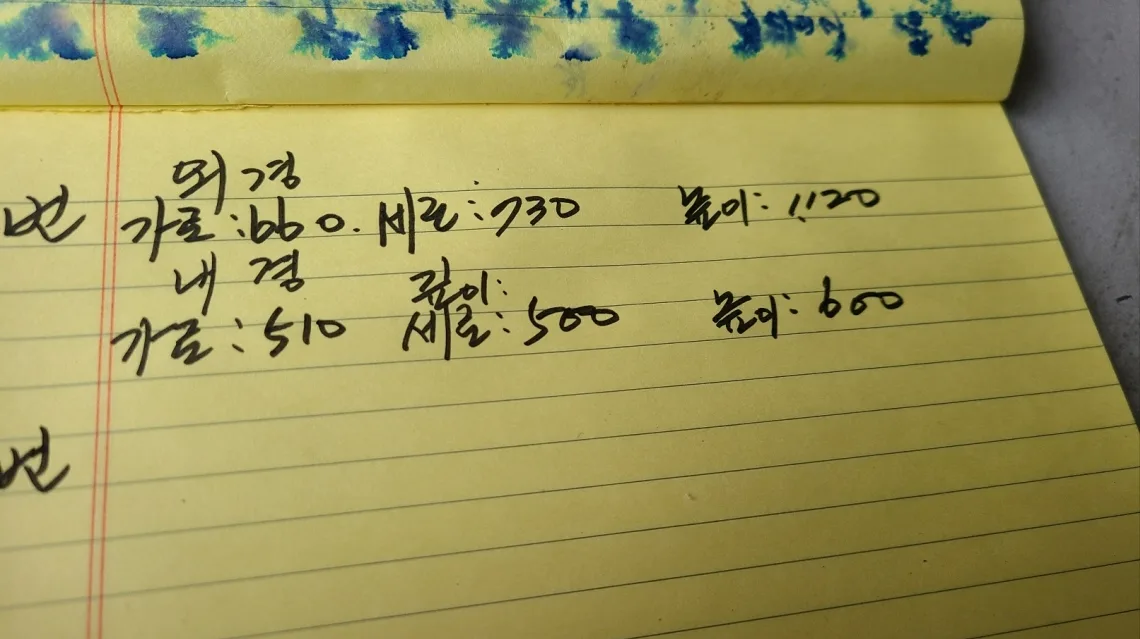 외경
번 가로:660. 세로:730 높이:1,120
내경 깊이:
가로:510 세로:500 높이:600
번